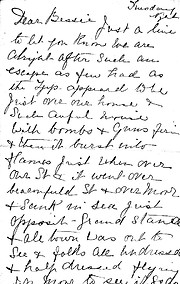 Tuesday
Dear Bessie Just a line
to let you know we are
alright after such an
escape as few had as
the Zepp appeared to be
just over our house &
such awful noise
with bombs & Guns firing
& then it burst into
flames just when over
our St & it went over
beaconsfield St & over Moor
& sank in sea just
opposite Grand Stand
& all town was out to
see & folks all undressed
& half dressed flying
on Moor to see it